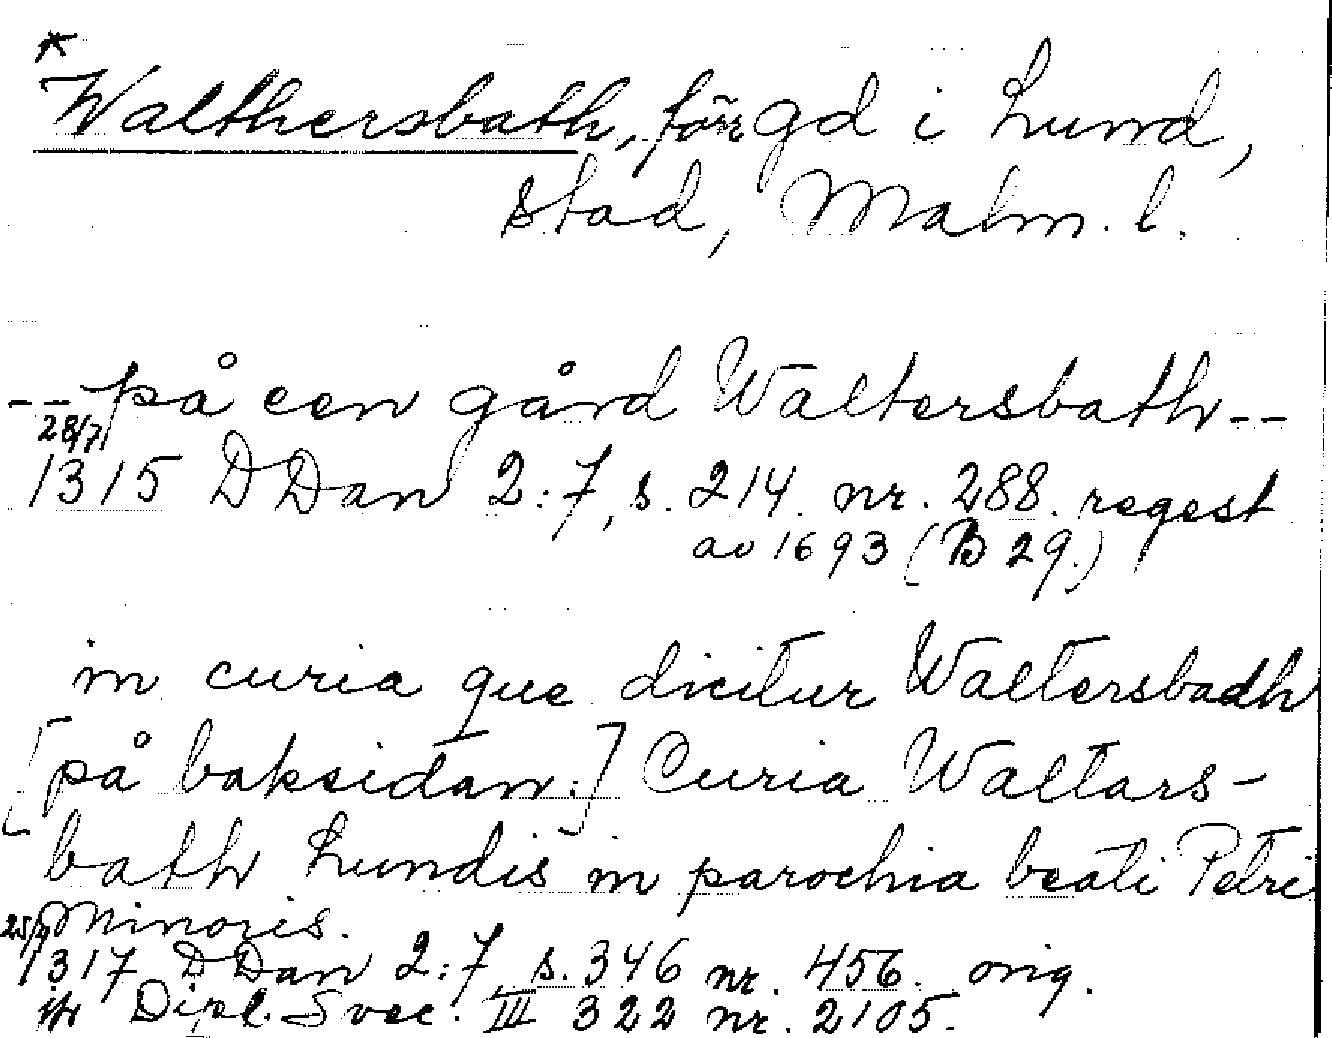 *
Walthersbath, förr gd i Lund,
stad, Malm. l.
-- på een gård Waltersbath --
28/7
1315 DDan 2:7, s. 214 nr. 288. regest
av 1693 (B 29.)
in curia que dicitur Waltersbadh
[på baksidan:] Curia Waltars-
bath Lundis in parochia beati Petri
minoris.
25/9
1317 DDan 2:7, s. 346 nr. 456. orig.
Dipl. Svec. III 322 nr. 2105.